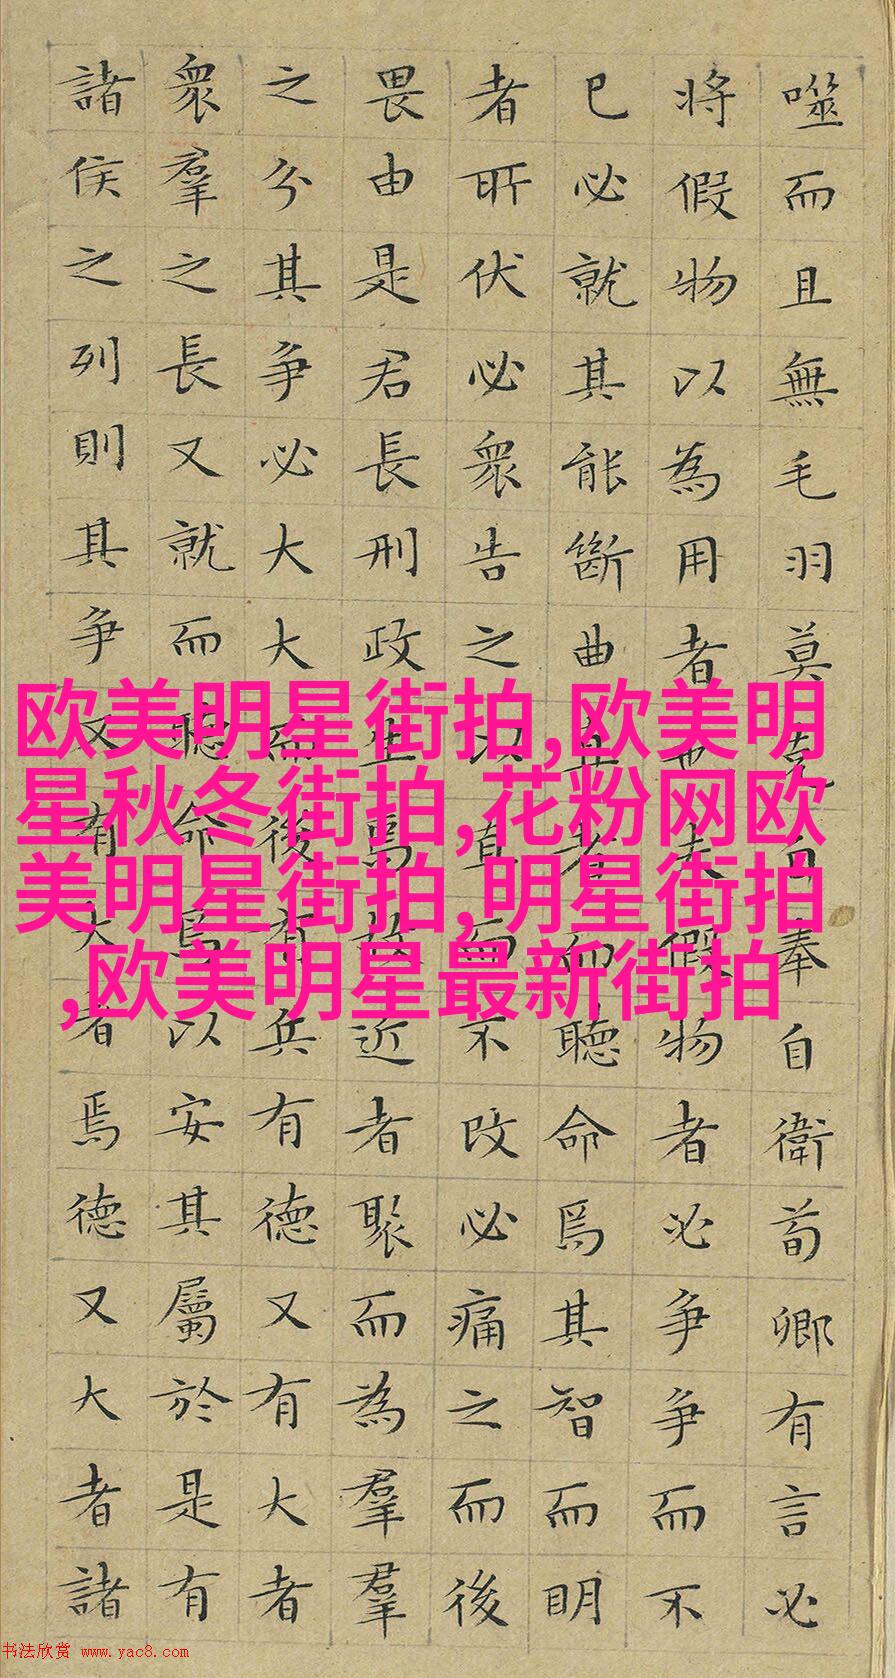 噬而且無毛羽莫克自奉自衛荀卿有言必
将假物以為用者也夫假物者必争争而不
已必就其能斷曲直者而聽命焉其智而明
者所伏必衆告之以直而不改必痛之而後
畏由是君長刑政生焉故近者聚而為羣羣
之分其争必大大而後有兵有德又有大者
衆羣之長又就而聽命焉以安其屬於是有
諸侯之列則其争又有大者焉德又大者諸
欧美明星街拍,欧美明
星秋冬街拍,花粉网欧
美明星街拍,明星街拍
,欧美明星最新街拍
书法欣赏 www.yac8.com